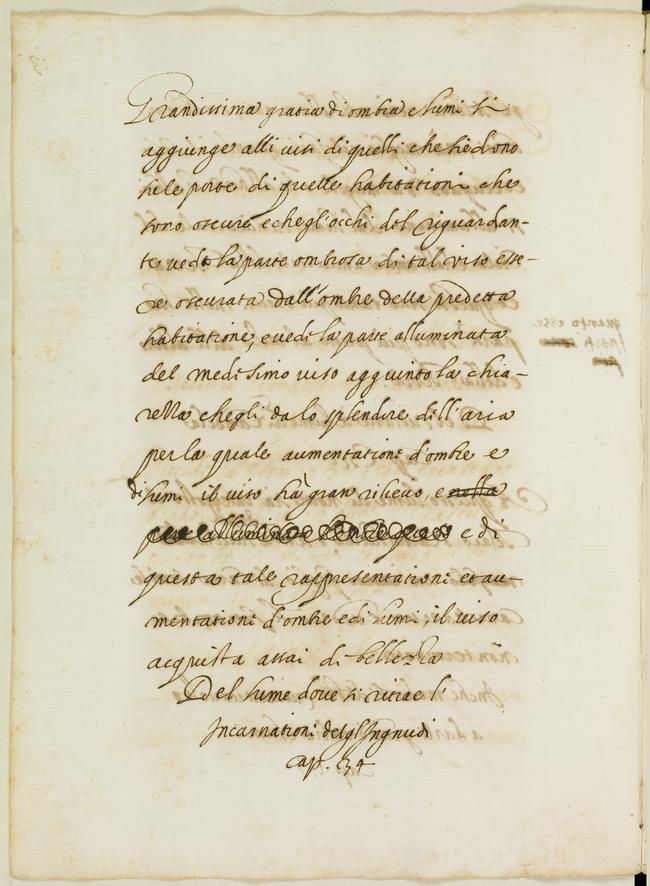 Grandissima gratia di ombra e lumi si
aggiunge alli visi di quelli che siedono
su le porte di quelle habitationi che
sono oscure e che gl'occhi del riguardan-
te vedo la parte ombrosa di tal viso esse-
re oscurata dall'ombre della predetta
habitatione, e vedi la parte alluminata
del medesimo viso aggiunto la chia-
rezza che gli da lo splendore dell'aria
per la quale aumentatione d'ombre e
di lumi il viso hà gran rilievo, e nella
e di
questa tale rappresentatione et au-
mentatione d'ombre e di lumi, il viso
acquista assai di bellezza
Del lume dove si ritrae l'
Incarnationi degl'Ingnudi
Cap. 34